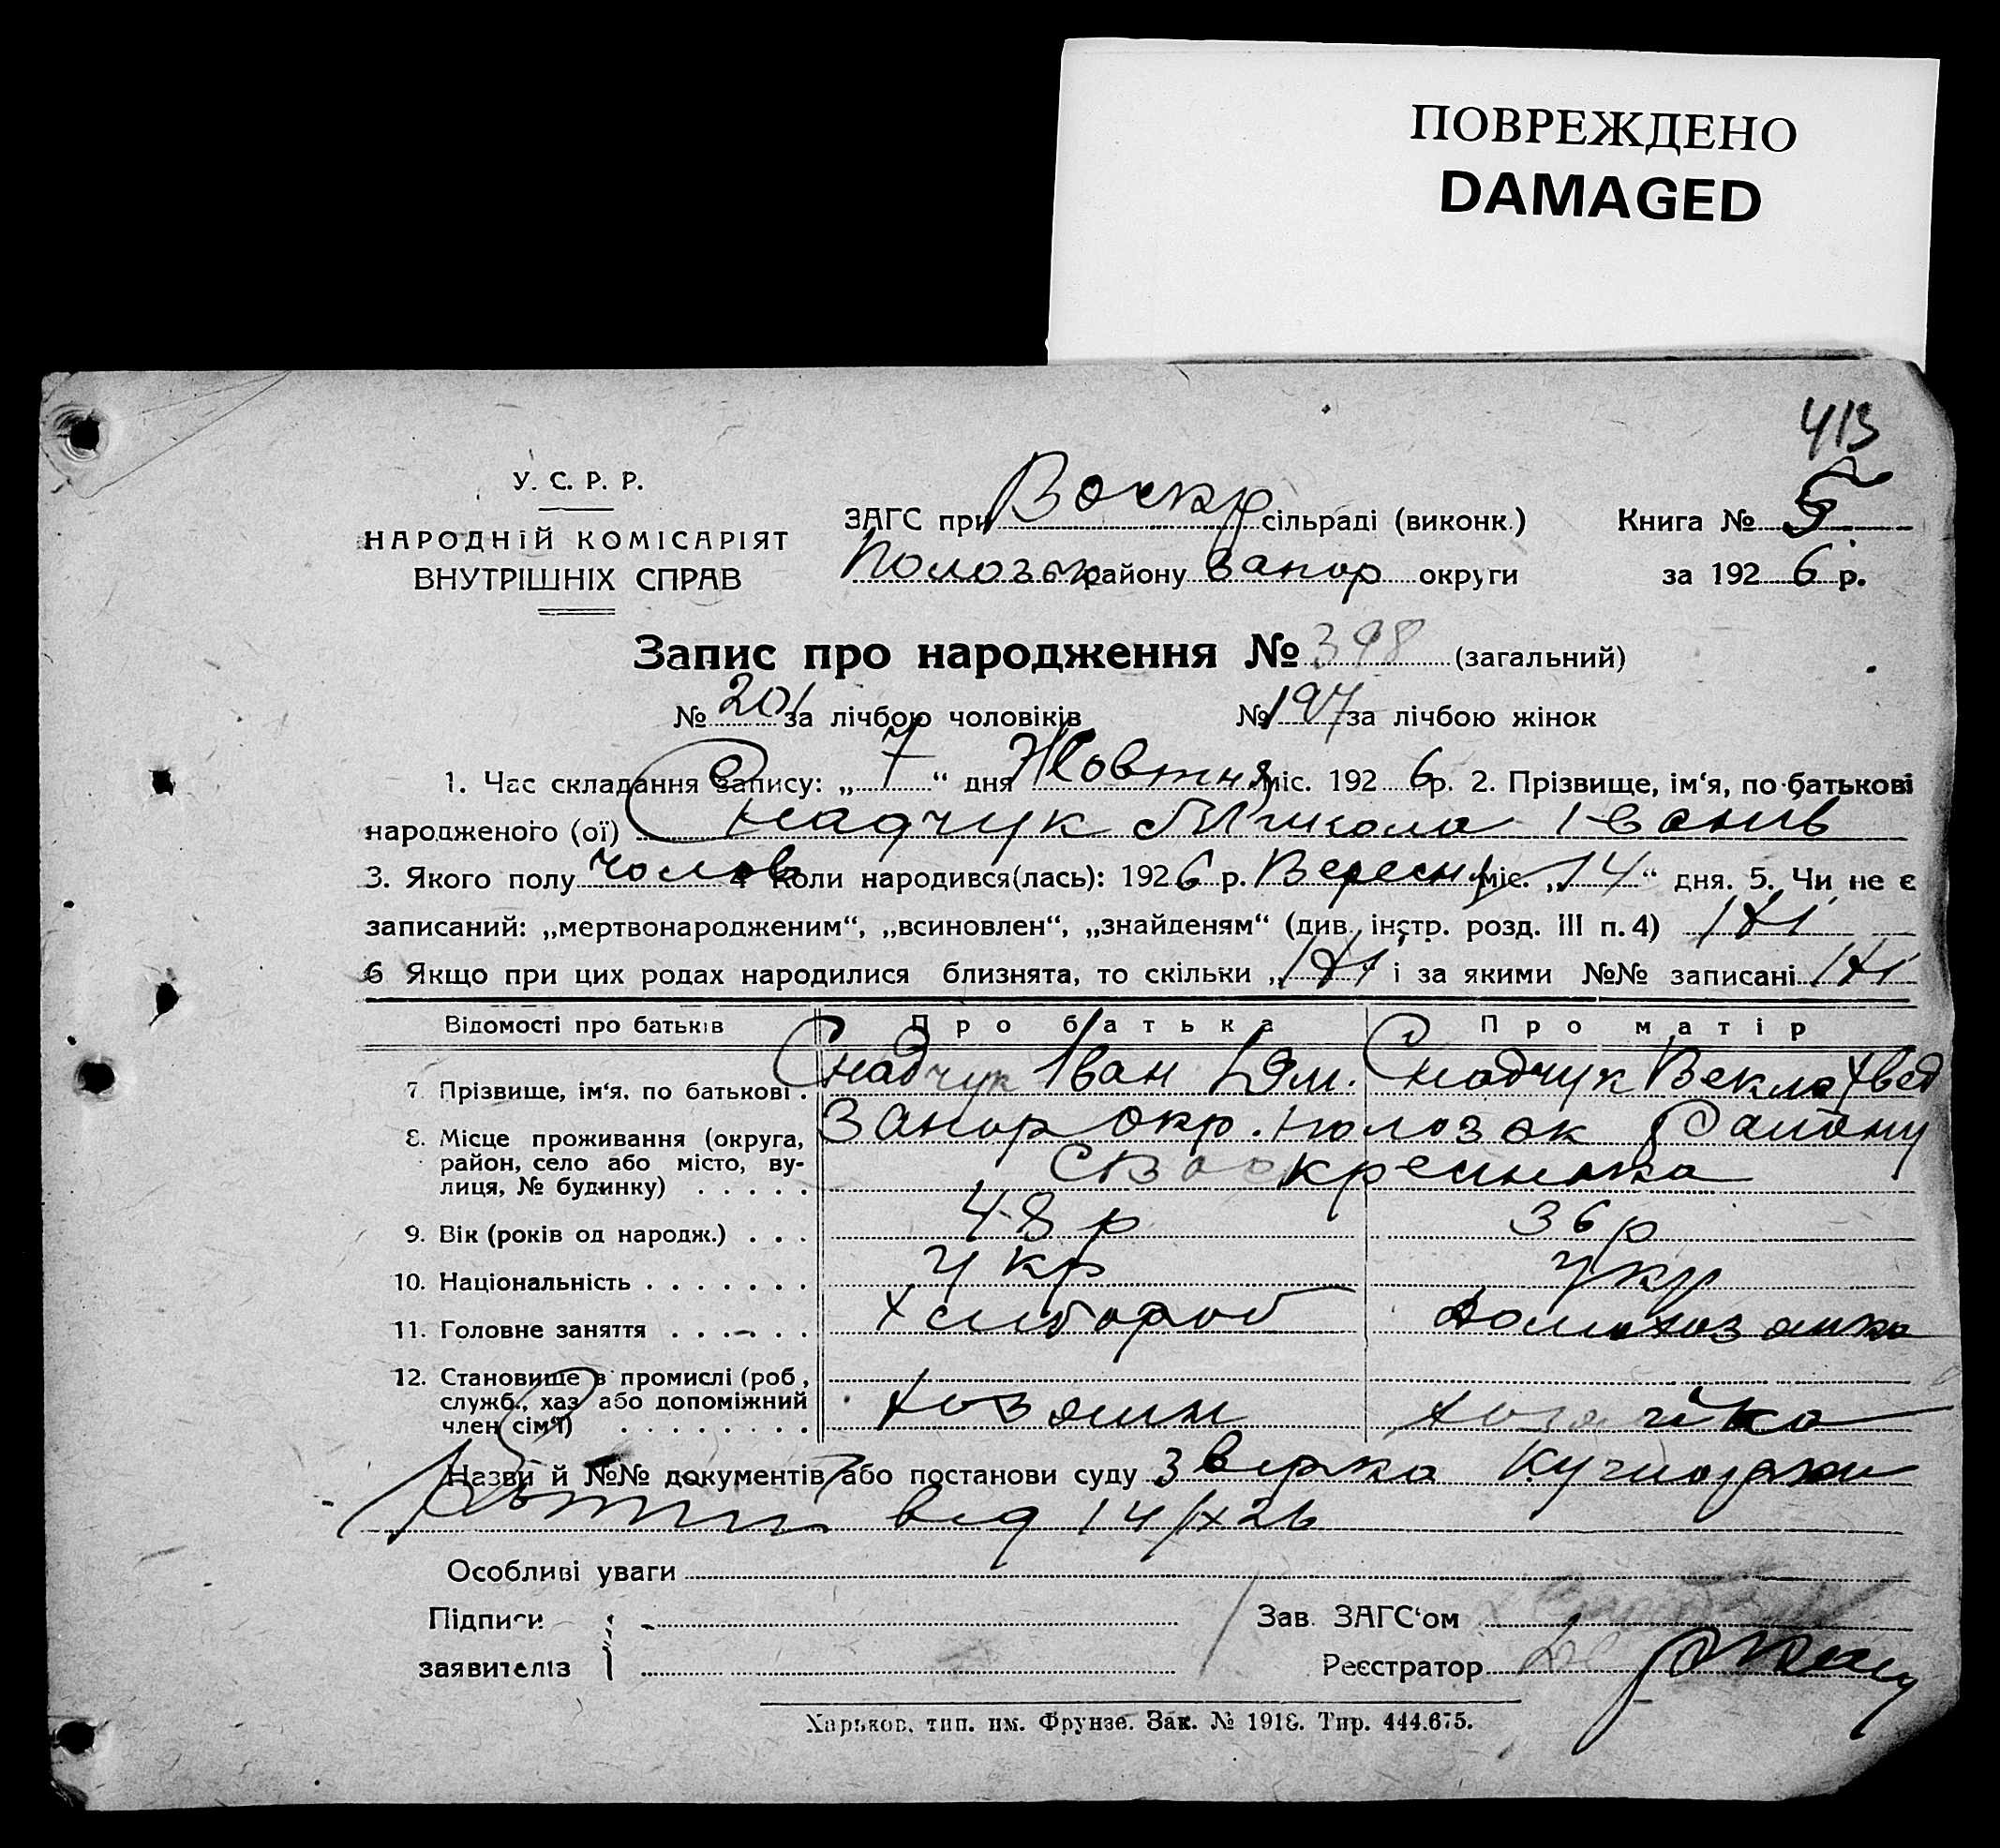 ПОВРЕЖДЕНО
DAMAGED
413
У. С. Р. Р.
НАРОДНІЙ КОМІСАРІЯТ
ВНУТРІШНІХ СПРАВ
ЗАГС при Воскр сільраді (виконк.)
Книга № 5
Полозьк району Запор округи
за 1926 р.
Запис про народження № 398 (загальний)
№ 201 за лічбою чоловіків № 197 за лічбою жінок
1. Час складання запису: „ 7 “ дня Жовтня міс. 1926 р. 2. Прізвище, ім'я, по-батькові
народженого (ої) Снадчук Микола Іванів
3. Якого полу чолов 4 Коли народився(лась): 1926 р. Вересня міс. „14“ дня. 5. Чи не є
записаний: „мертвонародженим“, „всиновлен“, „знайденям“ (див. інстр. розд. III п. 4) Ні
6 Якщо при цих родах народилися близнята, то скільки „Ні“ і за якими №№ записані Ні
Відомості про батьків Про батька Про матір
7. Прізвище, ім'я, по батькові . Снадчук Іван Дем. Снадчук Векла Хвед
8. Місце проживання (округа, Запор окр. Полозьк Району
район, село або місто, ву- С Воскресенка
лиця, № будинку) . . . . .
9. Вік (років од народж.) . . . 48 р 36 р
10. Національність . . . . . . . Укр Укр
11. Головне заняття . . . . . . Хлібороб домохозяйка
12. Становище в промислі (роб.,
служб., хаз. або допоміжний хозяин хозяйка
член сім'ї) . . . . . . . .
Назви й №№ документів або постанови суду
від 14/IX 26
Особливі уваги
Підписи
Зав. ЗАГС'ом
заявителів
Реєстратор
Харьков, тип. им. Фрунзе. Зак. № 1918. Тир. 444.675.